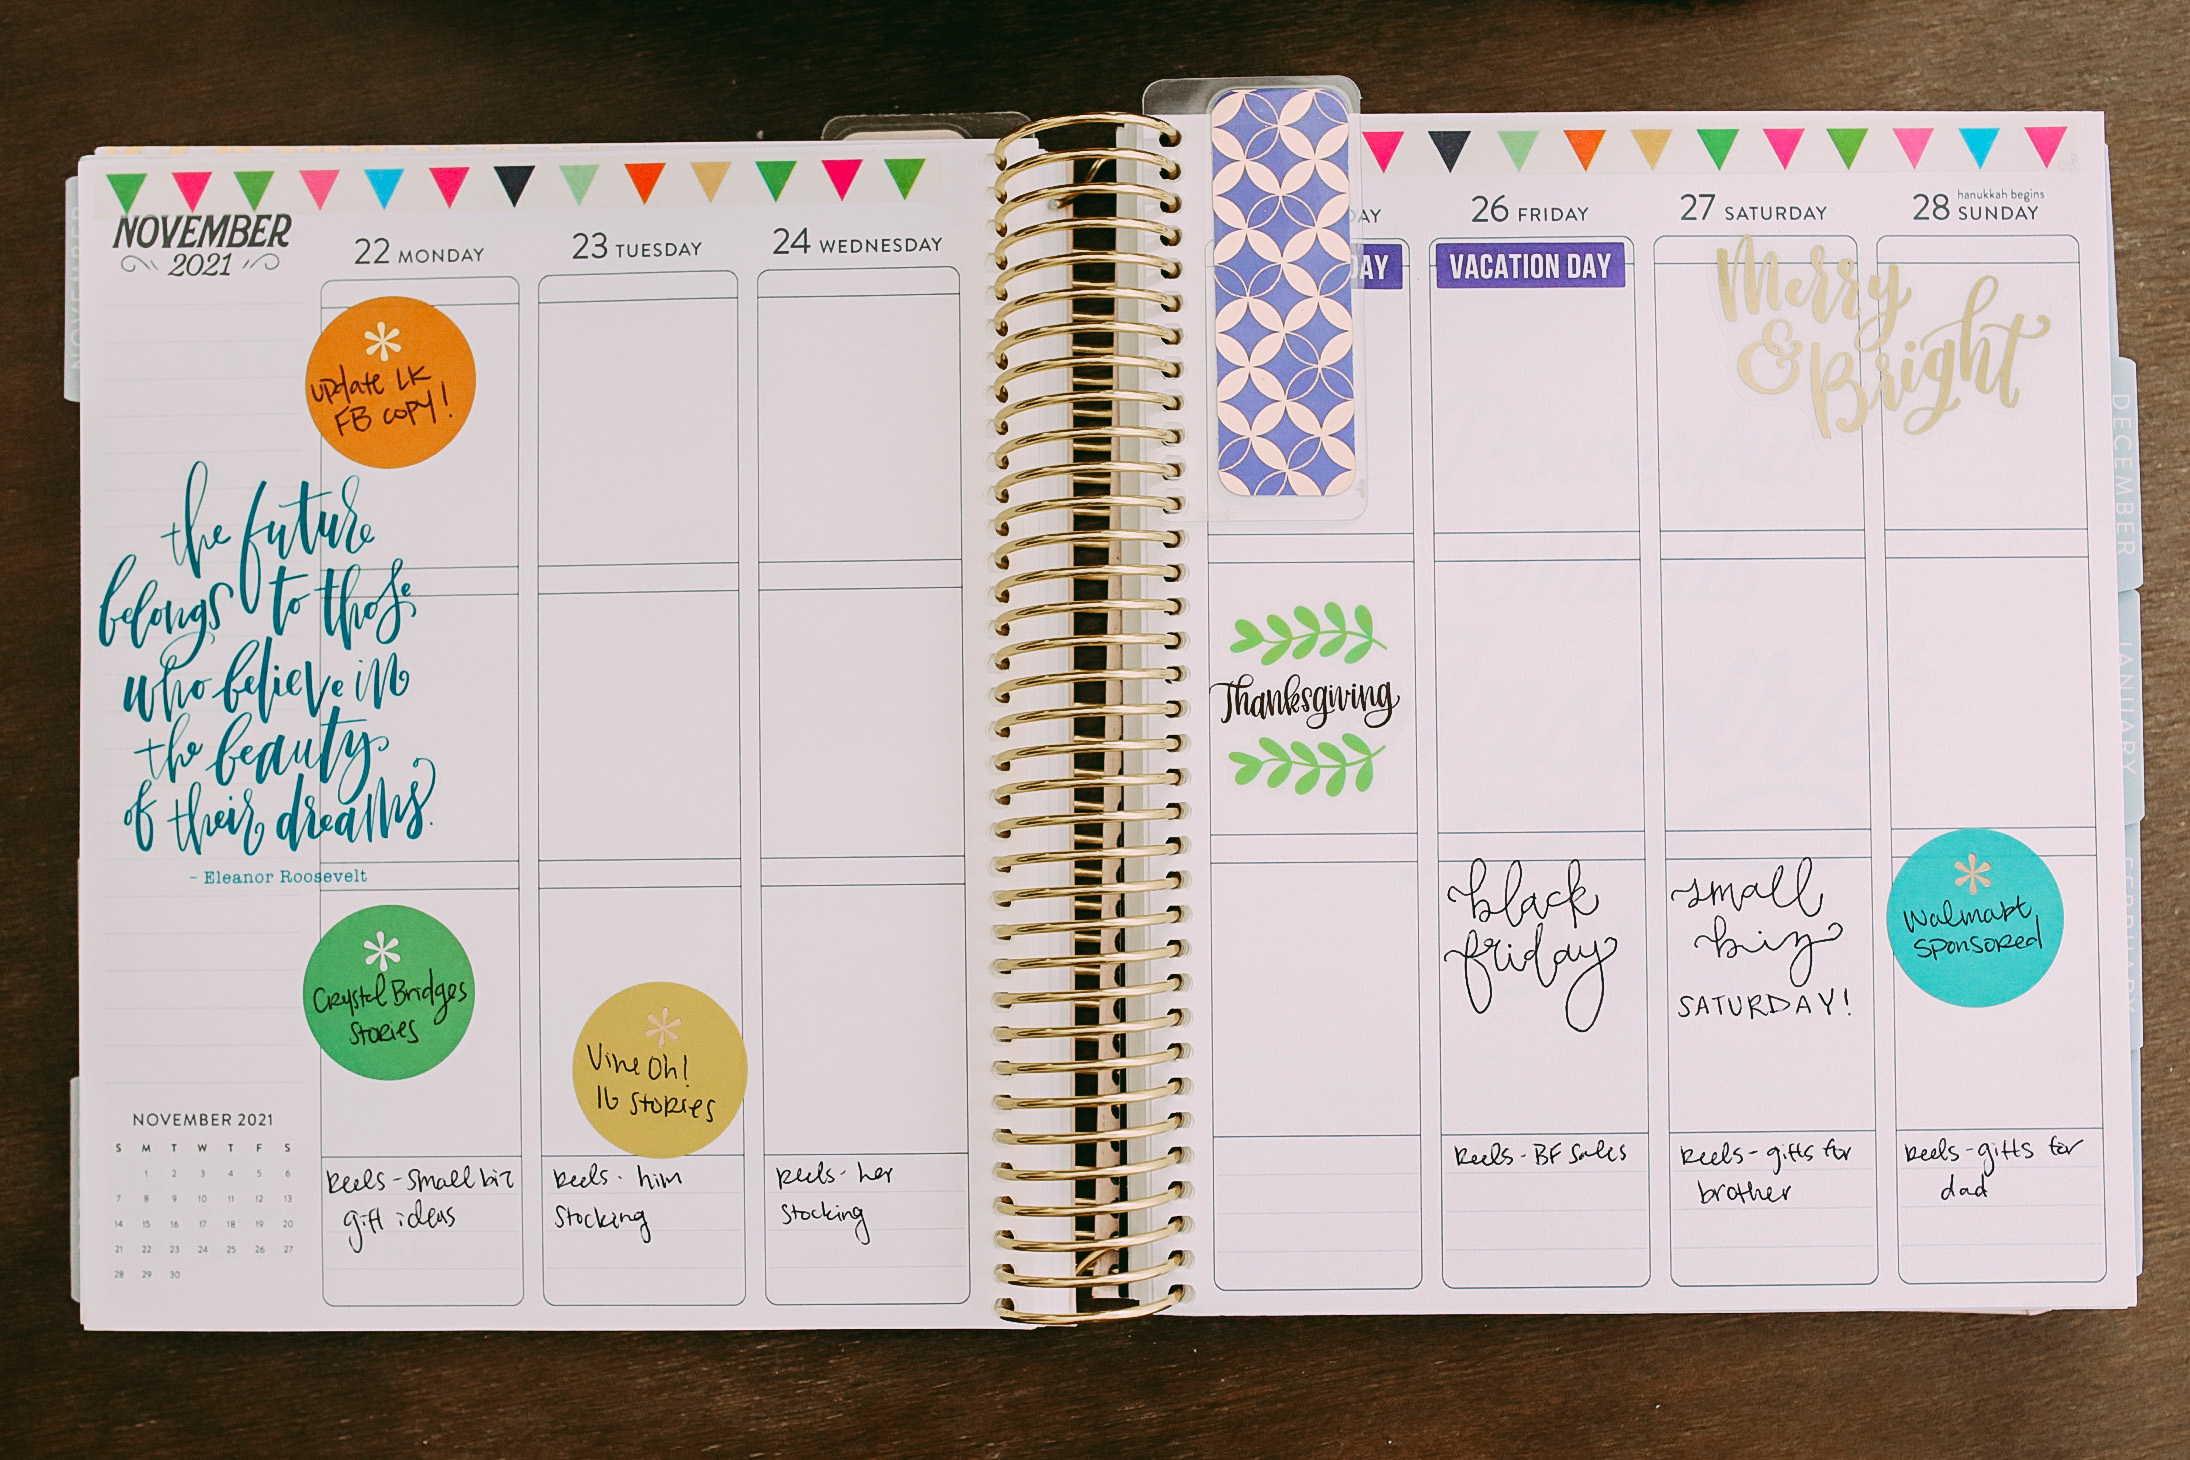 NOVEMBER
2021
22 MONDAY
23 TUESDAY
24 WEDNESDAY
update LK
FB copy!
the future
belongs to those
who believe in
the beauty
of their dreams.
- Eleanor Roosevelt
Crystal Bridges
Stories
Vine Oh!
16 Stories
NOVEMBER 2021
S M T W T F S
1 2 3 4 5 6
7 8 9 10 11 12 13
14 15 16 17 18 19 20
21 22 23 24 25 26 27
28 29 30
Reels - small biz
gift ideas
Reels - him
Stocking
Reels - her
Stocking
NOVEMBER
DAY
26 FRIDAY
27 SATURDAY
hanukkah begins
28 SUNDAY
DAY
VACATION DAY
Merry
& Bright
Thanksgiving
black
friday
small
biz
SATURDAY!
Walmart
Sponsored
Reels - BF Sales
Reels - gifts for
brother
Reels - gifts for
dad
DECEMBER
JANUARY
FEBRUARY